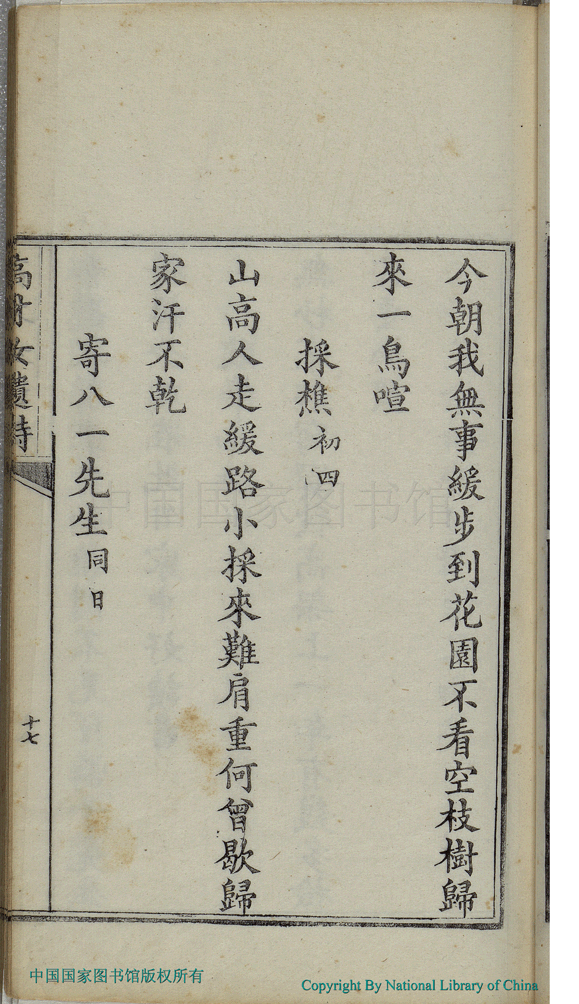 今朝我無事緩步到花園不看空枝樹歸
來一鳥喧
採樵初四
山高人走緩路小採來難肩重何曾歇歸
家汗不乾
寄八一先生同日
高才女遺詩
十七
中国国家图书馆
中国国家图书馆版权所有
Copyright By National Library of China